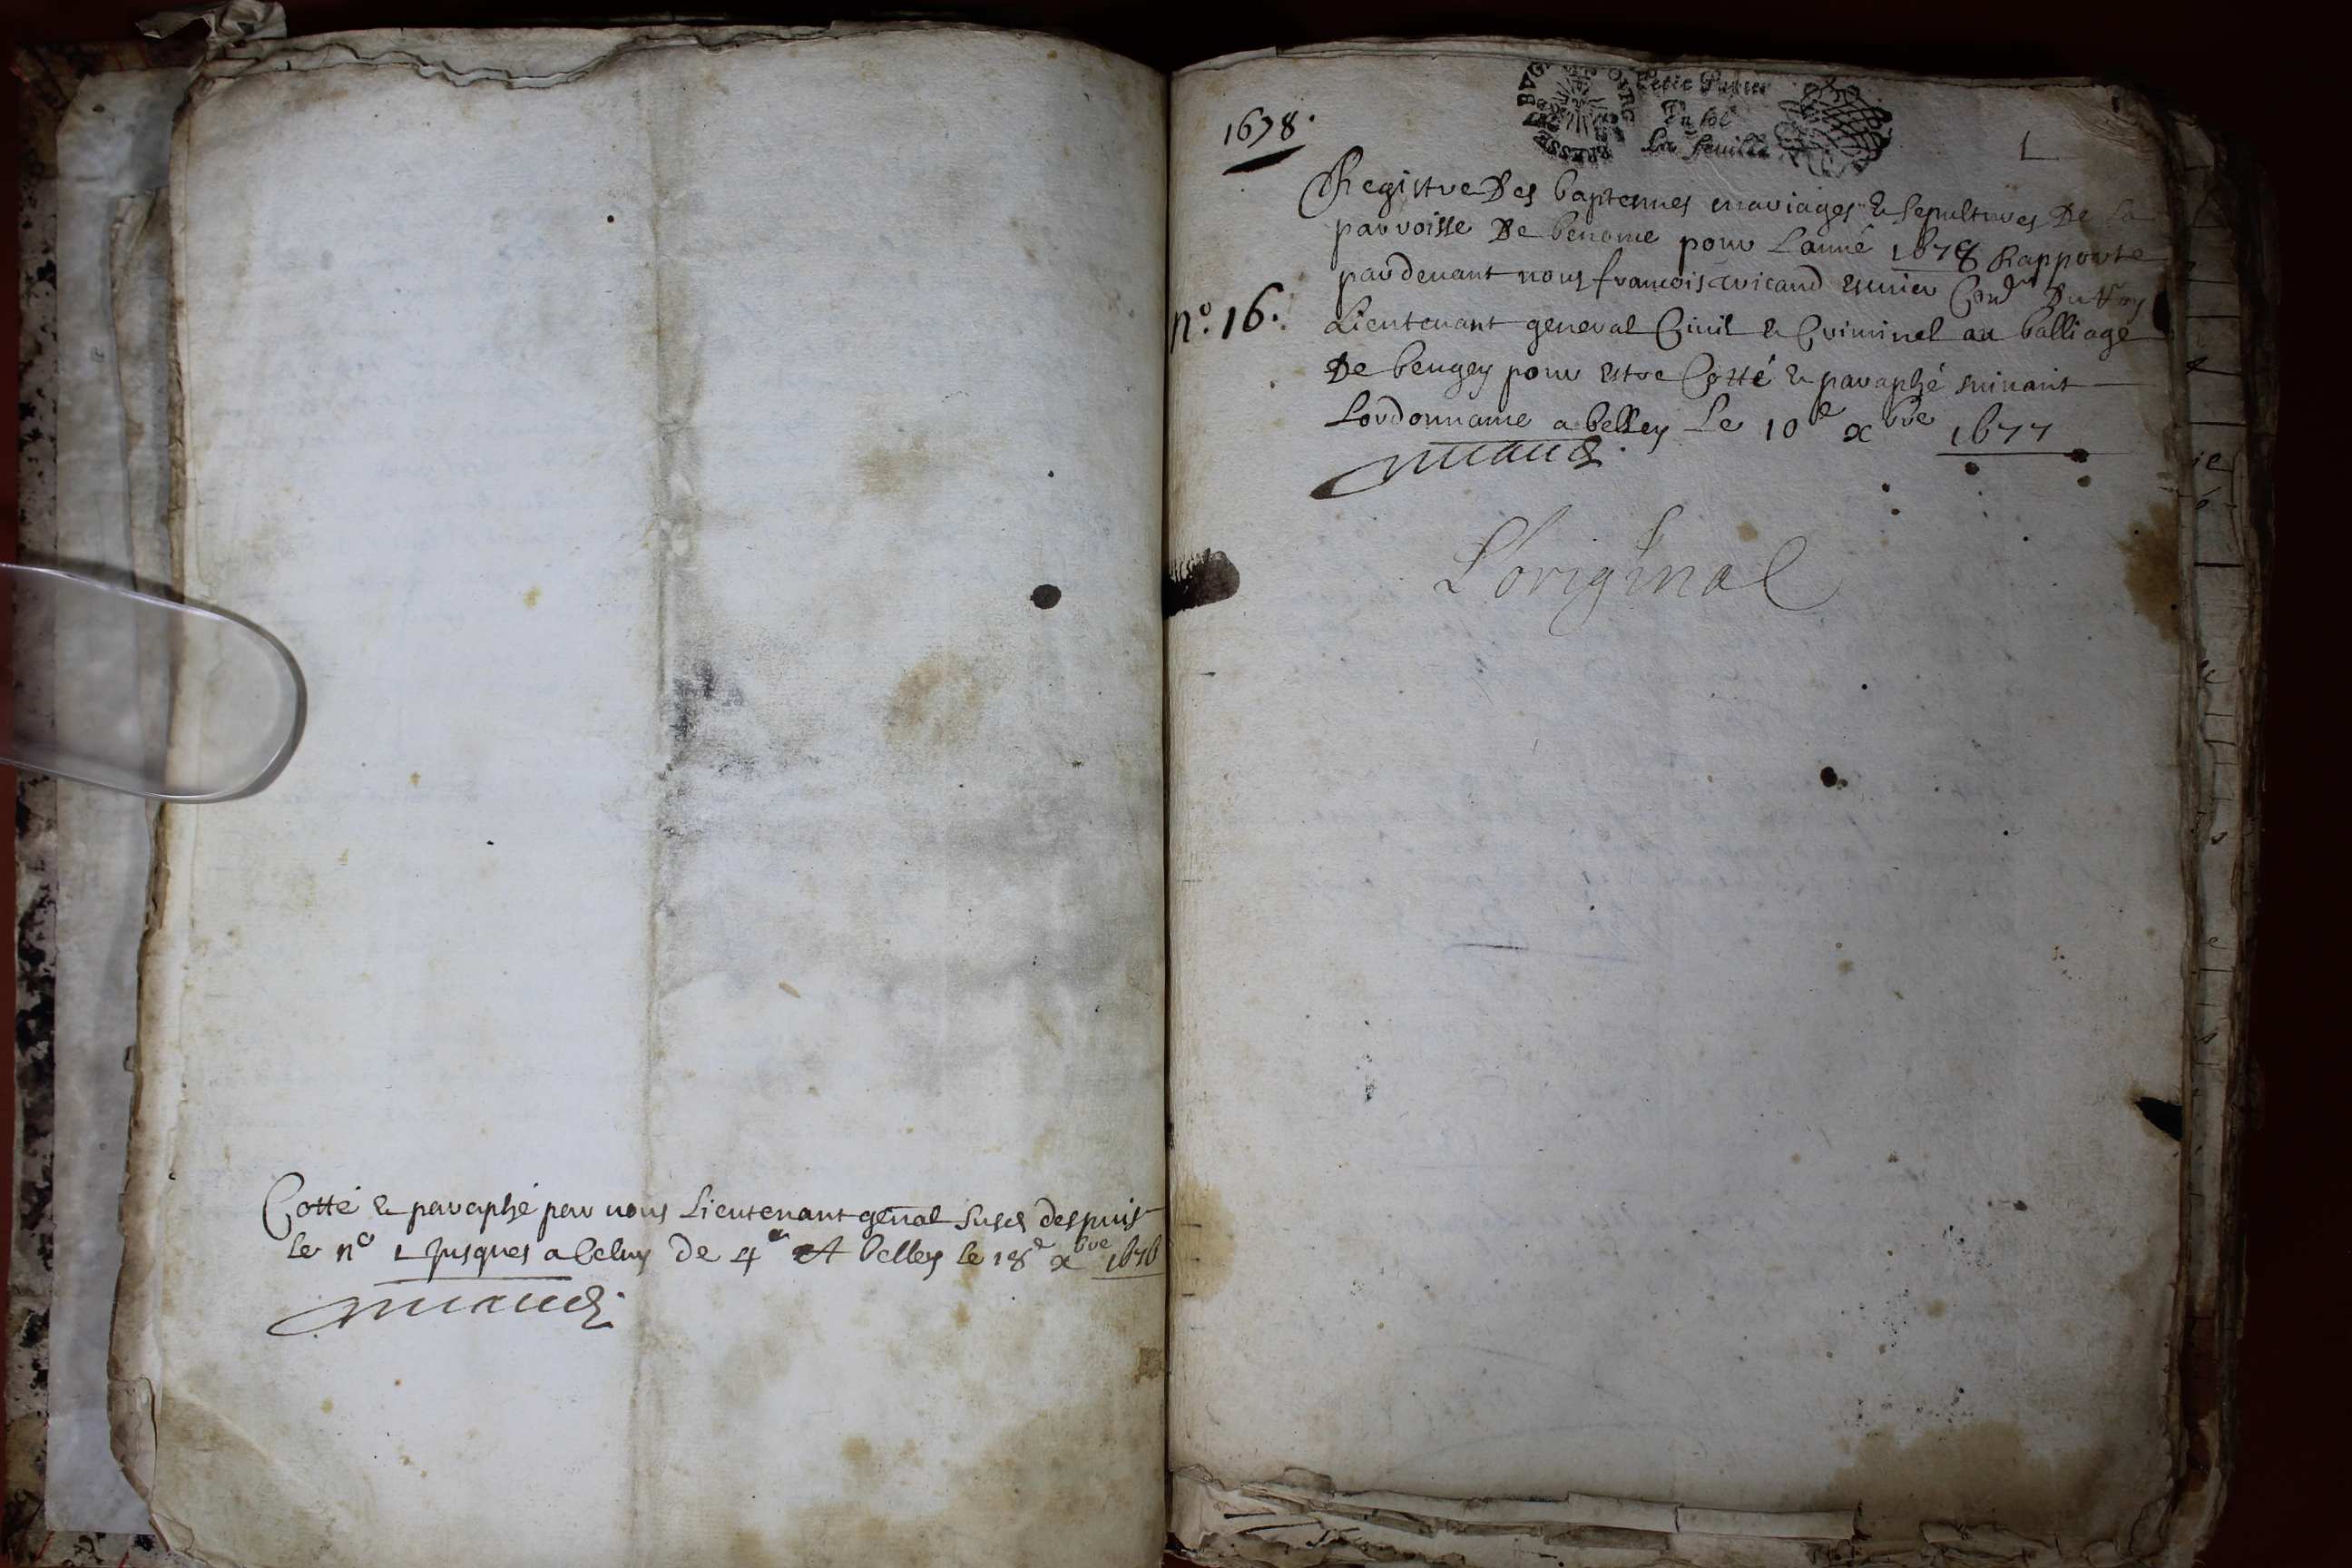 Cotté & paraphé par nous Lieutenant gnãl susd despuis
le n° 1 Jusques a Celuy de 4e A belley le 18e xbre 1676
1678.
petit Papier
Un sol
La feuille
BRESSE BVG
1
Registre Des baptesmes mariages & sepultures De La
parroisse De benonce pour Lanné 1678 Rapporté
pardeuant nous francois escuier Conr Du Roy
n°. 16.
Lieutenant general Ciuil & Criminel au balliage
De beugey pour estre Cotté & paraphé suiuant
Lordonnance a belley Le 10e xbre 1677
L'original